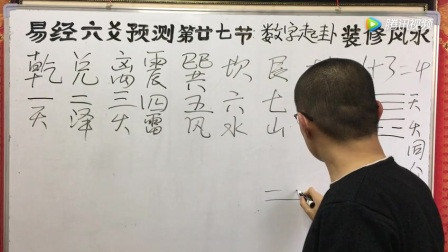 腾讯视频
易经六爻预测第廿七节 数字起卦 装修风水
乾 兑 离 震 巽 坎 艮 1+3=4
一 二 三 四 五 六 七
天 泽 火 雷 风 水 山
天
火
同
人